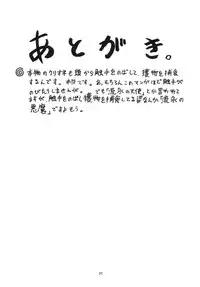 あとがき。
◎本物のクリオネも頭から触手をのばして、獲物を捕食
するんです。本当です。あ、もちろんこのマンガほど触手が
のびたりしませんが。でも「流氷の天使」とか言われて
ますが、触手をのばし獲物を捕食してるなんか「流氷の
悪魔」ですよもう。